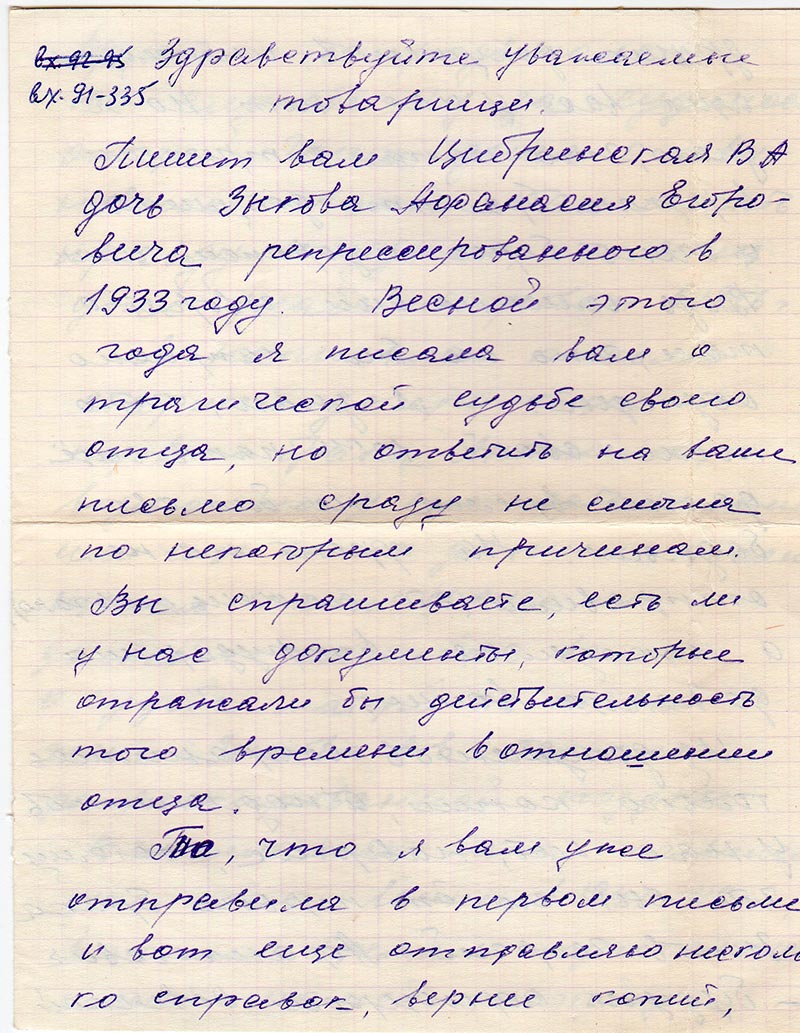 вх. 92-95
Здравствуйте уважаемые
вх. 91-335
товарищи.
Пишет вам Цибринская В А
дочь Зыкова Афанасия Егоро-
вича репрессированного в
1933 году. Весной этого
года я писала вам о
трагической судьбе своего
отца, но ответить на ваше
письмо сразу не смогла
по некоторым причинам.
Вы спрашиваете, есть ли
у нас документы, которые
отражали бы действительность
того времени в отношении
отца.
То, что я вам уже
отправила в первом письме
и вот еще отправляю несколь
ко справок, вернее копий,